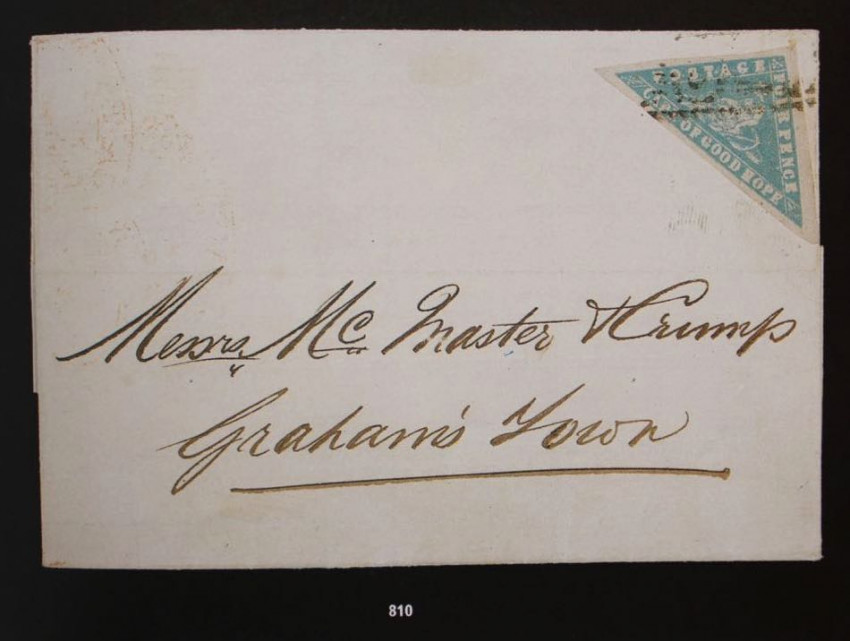 POSTAGE
FOUR PENCE
CAPE OF GOOD HOPE
Messrs. Mc. Master & Crump
Graham's Town
810